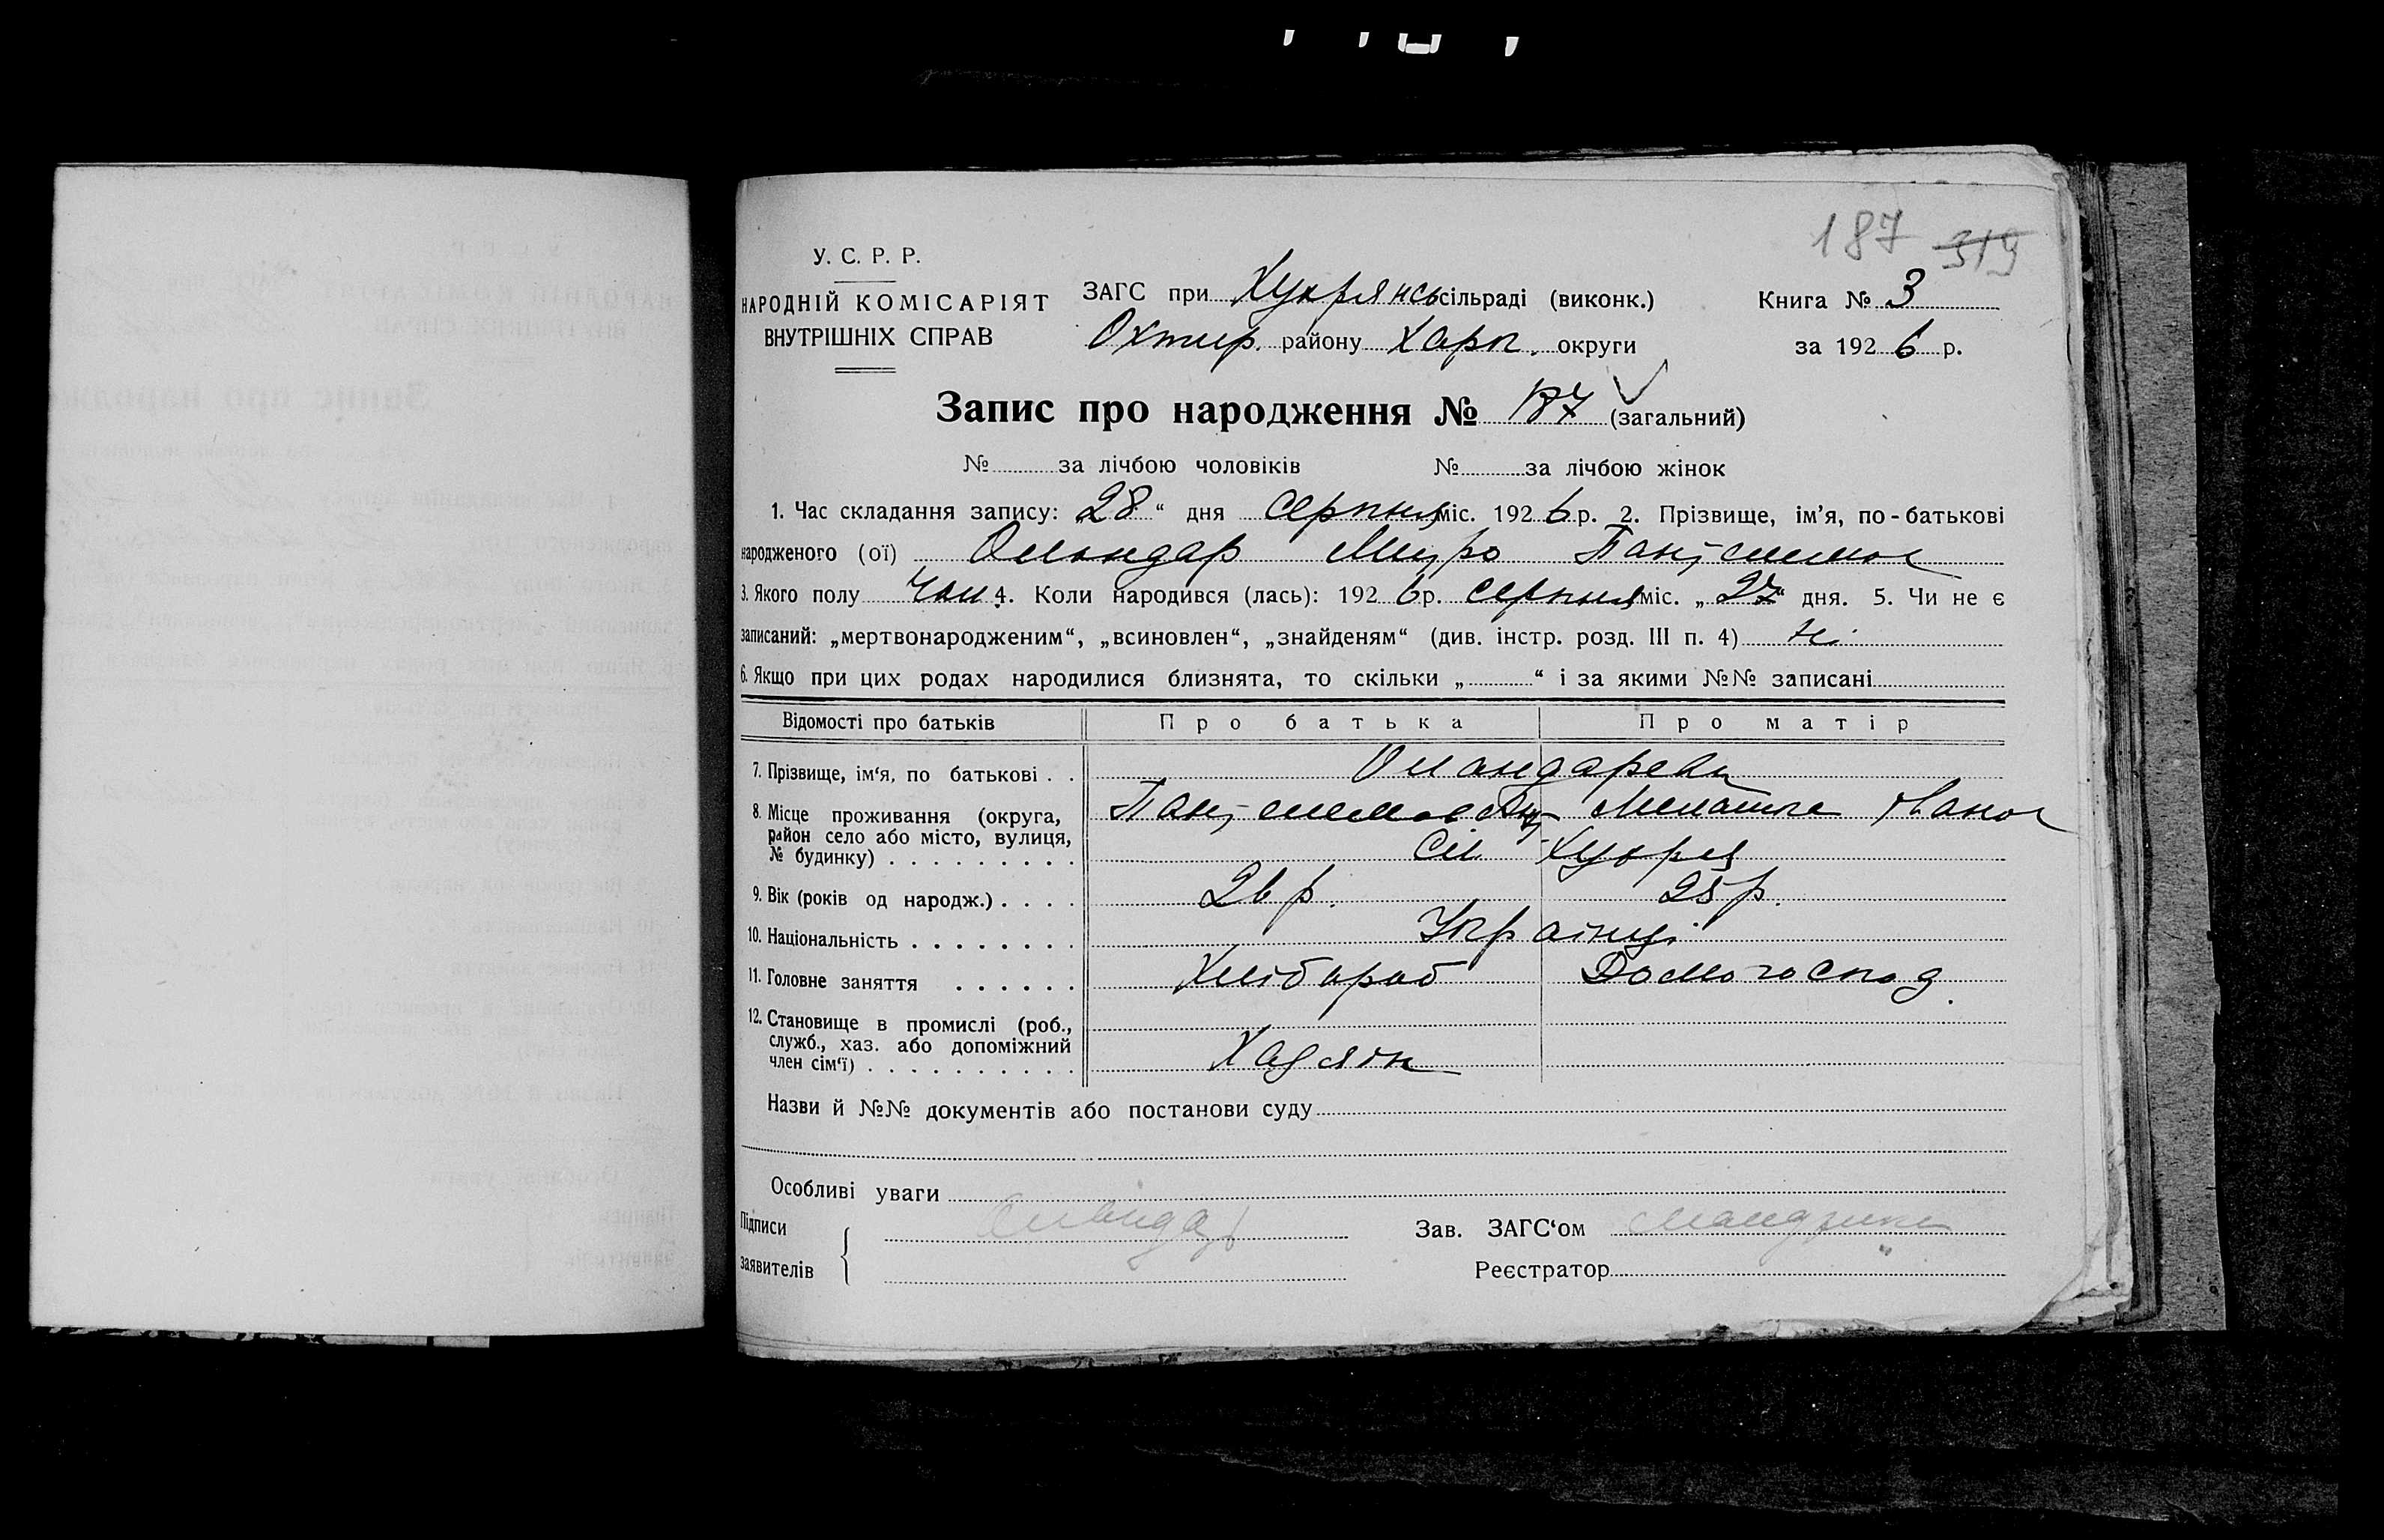 187 319
У. С. Р. Р.
НАРОДНІЙ КОМІСАРІЯТ
ВНУТРІШНІХ СПРАВ
ЗАГС при Хухрянсь сільраді (виконк.)
Охтир. району Харк. округи
Книга № 3
за 192 6 р.
Запис про народження № 187 (загальний)
№ за лічбою чоловіків № за лічбою жінок
1. Час складання запису: „28“ дня серпня міс. 192 6 р. 2. Прізвище, ім'я, по-батькові
народженого (ої)
3. Якого полу Чол 4. Коли народився (лась): 192 6 р. серпня міс. „27“ дня. 5. Чи не є
записаний: „мертвонародженим“, „всиновлен“, „знайденям“ (див. інстр. розд. III п. 4) Ні
6. Якщо при цих родах народилися близнята, то скільки „ “ і за якими №№ записані
Відомості про батьків Про батька Про матір
7. Прізвище, ім'я, по батькові . .
8. Місце проживання (округа,
район село або місто, вулиця,
№ будинку) . . . . . . . . . Сел. Хухря
9. Вік (років од народж.) . . . . 26 р. 25 р.
10. Національність . . . . . . . . Українці
11. Головне заняття . . . . . . Хлібороб Домогоспод.
12. Становище в промислі (роб.,
служб., хаз. або допоміжний
член сім'ї) . . . . . . . . . . Хазяїн
Назви й №№ документів або постанови суду
Особливі уваги
Підписи
заявителів
Зав. ЗАГС'ом
Реєстратор